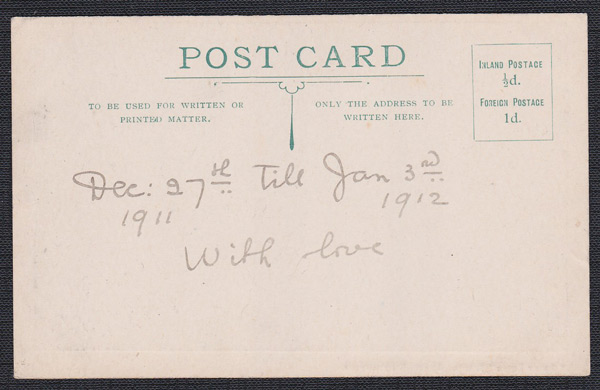 POST CARD
TO BE USED FOR WRITTEN OR
PRINTED MATTER.
ONLY THE ADDRESS TO BE
WRITTEN HERE.
INLAND POSTAGE
½d.
FOREIGN POSTAGE
1d.
Dec: 27th Till Jan 3rd
1911 1912
With love